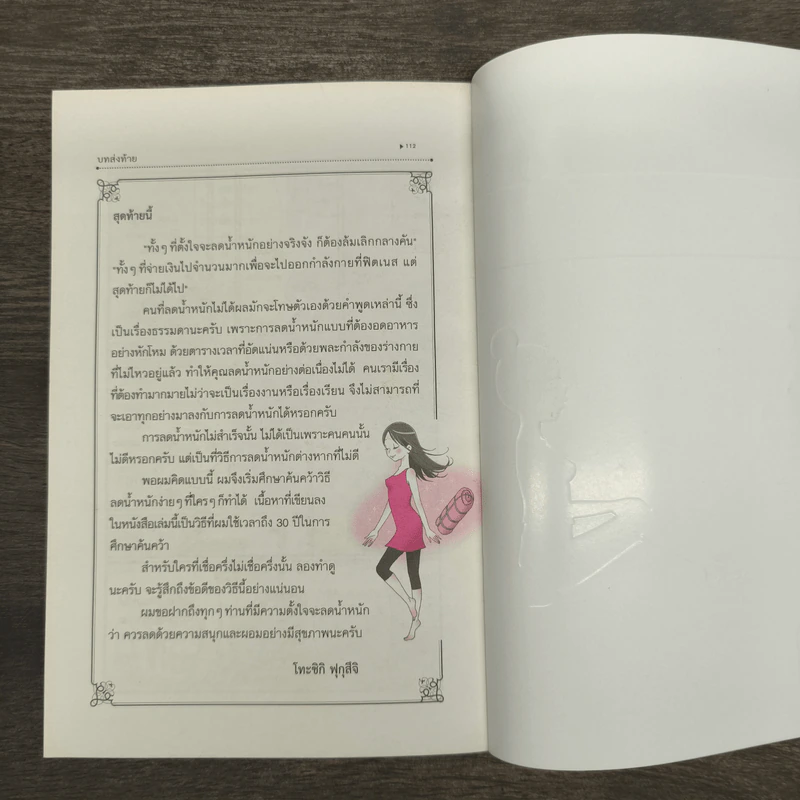 บทส่งท้าย
112
สุดท้ายนี้
"ทั้งๆ ที่ตั้งใจจะลดน้ำหนักอย่างจริงจัง ก็ต้องล้มเลิกกลางคัน"
"ทั้งๆ ที่จ่ายเงินไปจำนวนมากเพื่อจะไปออกกำลังกายที่ฟิตเนส แต่
สุดท้ายก็ไม่ได้ไป"
คนที่ลดน้ำหนักไม่ได้ผลมักจะโทษตัวเองด้วยคำพูดเหล่านี้ ซึ่ง
เป็นเรื่องธรรมดานะครับ เพราะการลดน้ำหนักแบบที่ต้องอดอาหาร
อย่างหักโหม ด้วยตารางเวลาที่อัดแน่นหรือด้วยพละกำลังของร่างกาย
ที่ไม่ไหวอยู่แล้ว ทำให้คุณลดน้ำหนักอย่างต่อเนื่องไม่ได้ คนเรามีเรื่อง
ที่ต้องทำมากมายไม่ว่าจะเป็นเรื่องงานหรือเรื่องเรียน จึงไม่สามารถที่
จะเอาทุกอย่างมาลงกับการลดน้ำหนักได้หรอกครับ
การลดน้ำหนักไม่สำเร็จนั้น ไม่ได้เป็นเพราะคนคนนั้น
ไม่ดีหรอกครับ แต่เป็นที่วิธีการลดน้ำหนักต่างหากที่ไม่ดี
พอผมคิดแบบนี้ ผมจึงเริ่มศึกษาค้นคว้าวิธี
ลดน้ำหนักง่ายๆ ที่ใครๆ ก็ทำได้ เนื้อหาที่เขียนลง
ในหนังสือเล่มนี้เป็นวิธีที่ผมใช้เวลาถึง 30 ปีในการ
ศึกษาค้นคว้า
สำหรับใครที่เชื่อครึ่งไม่เชื่อครึ่งนั้น ลองทำดู
นะครับ จะรู้สึกถึงข้อดีของวิธีนี้อย่างแน่นอน
ผมขอฝากถึงทุกๆ ท่านที่มีความตั้งใจจะลดน้ำหนัก
ว่า ควรลดด้วยความสนุกและผอมอย่างมีสุขภาพนะครับ
โทะชิกิ ฟุกุสึจิ